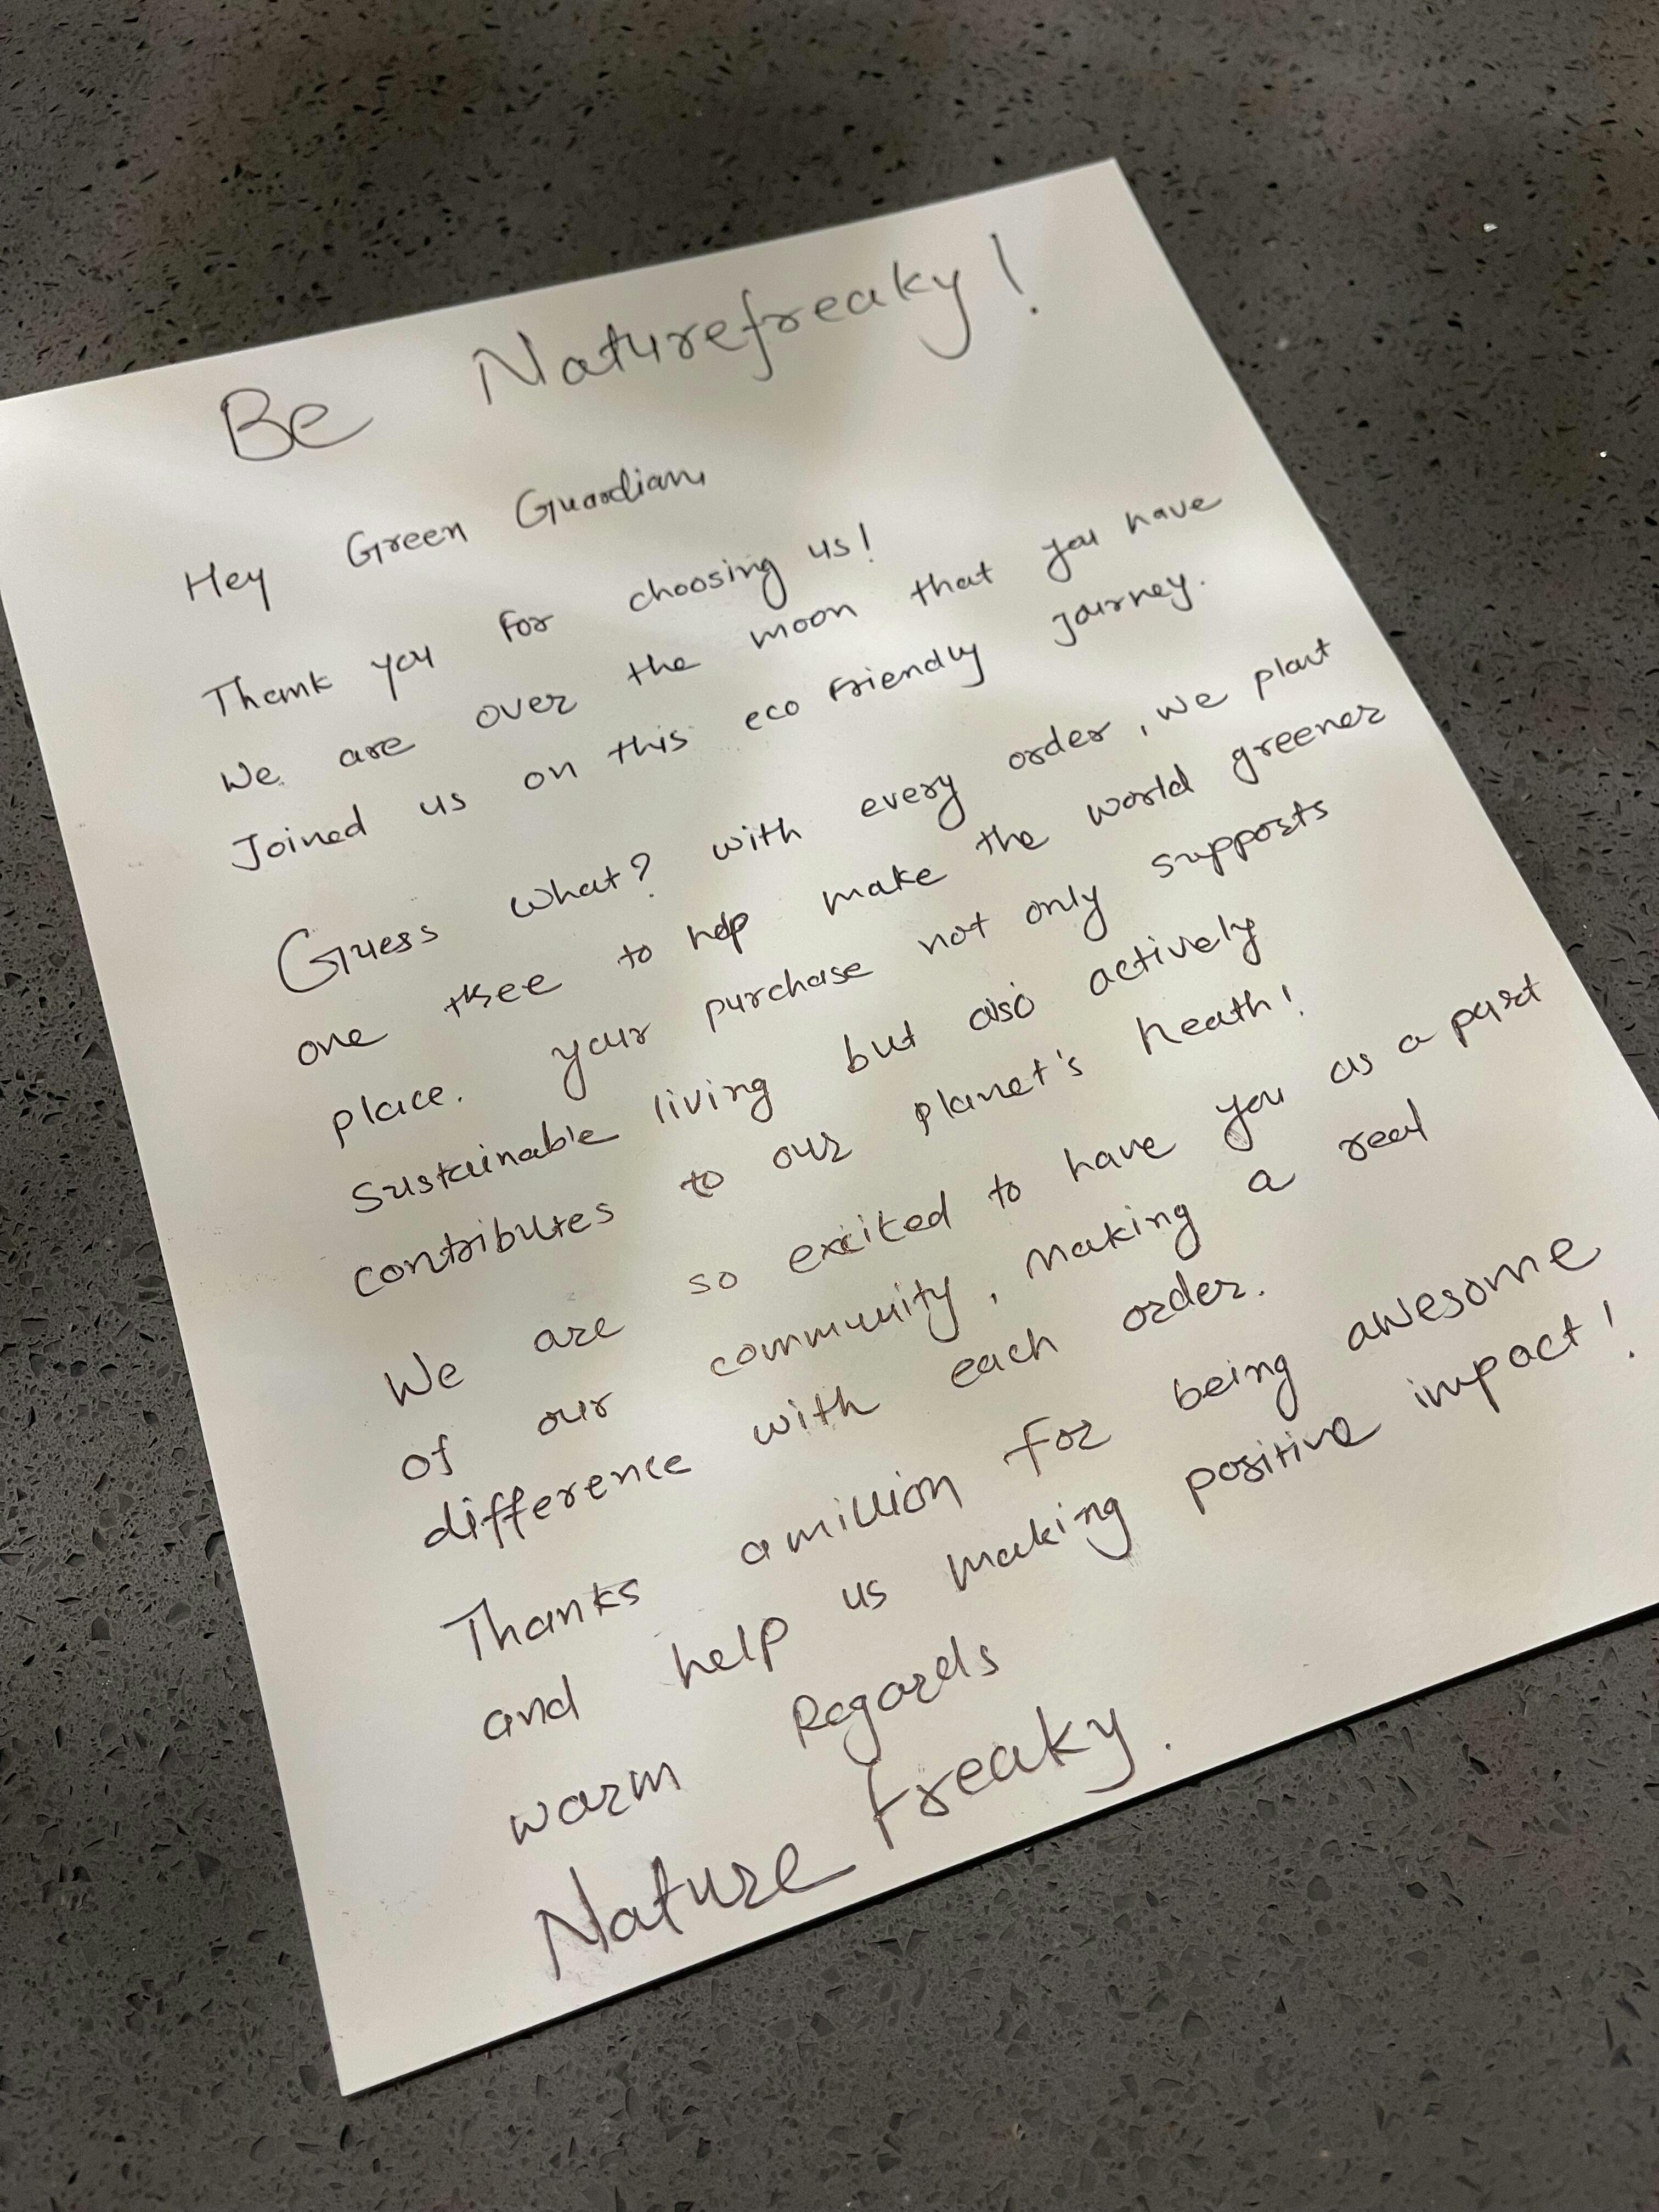 Be Naturefreaky!
Hey Green Guardian,
Thank you for choosing us!
We are over the moon that you have
Joined us on this eco friendly journey.
Guess what? with every order, we plant
one tree to help make the world greener
place. your purchase not only supports
Sustainable living but also actively
contributes to our planet's heath!
We are so excited to have you as a part
of our community, making a real
difference with each order.
Thanks a million for being awesome
and help us making positive impact!
warm Regards
Nature freaky.